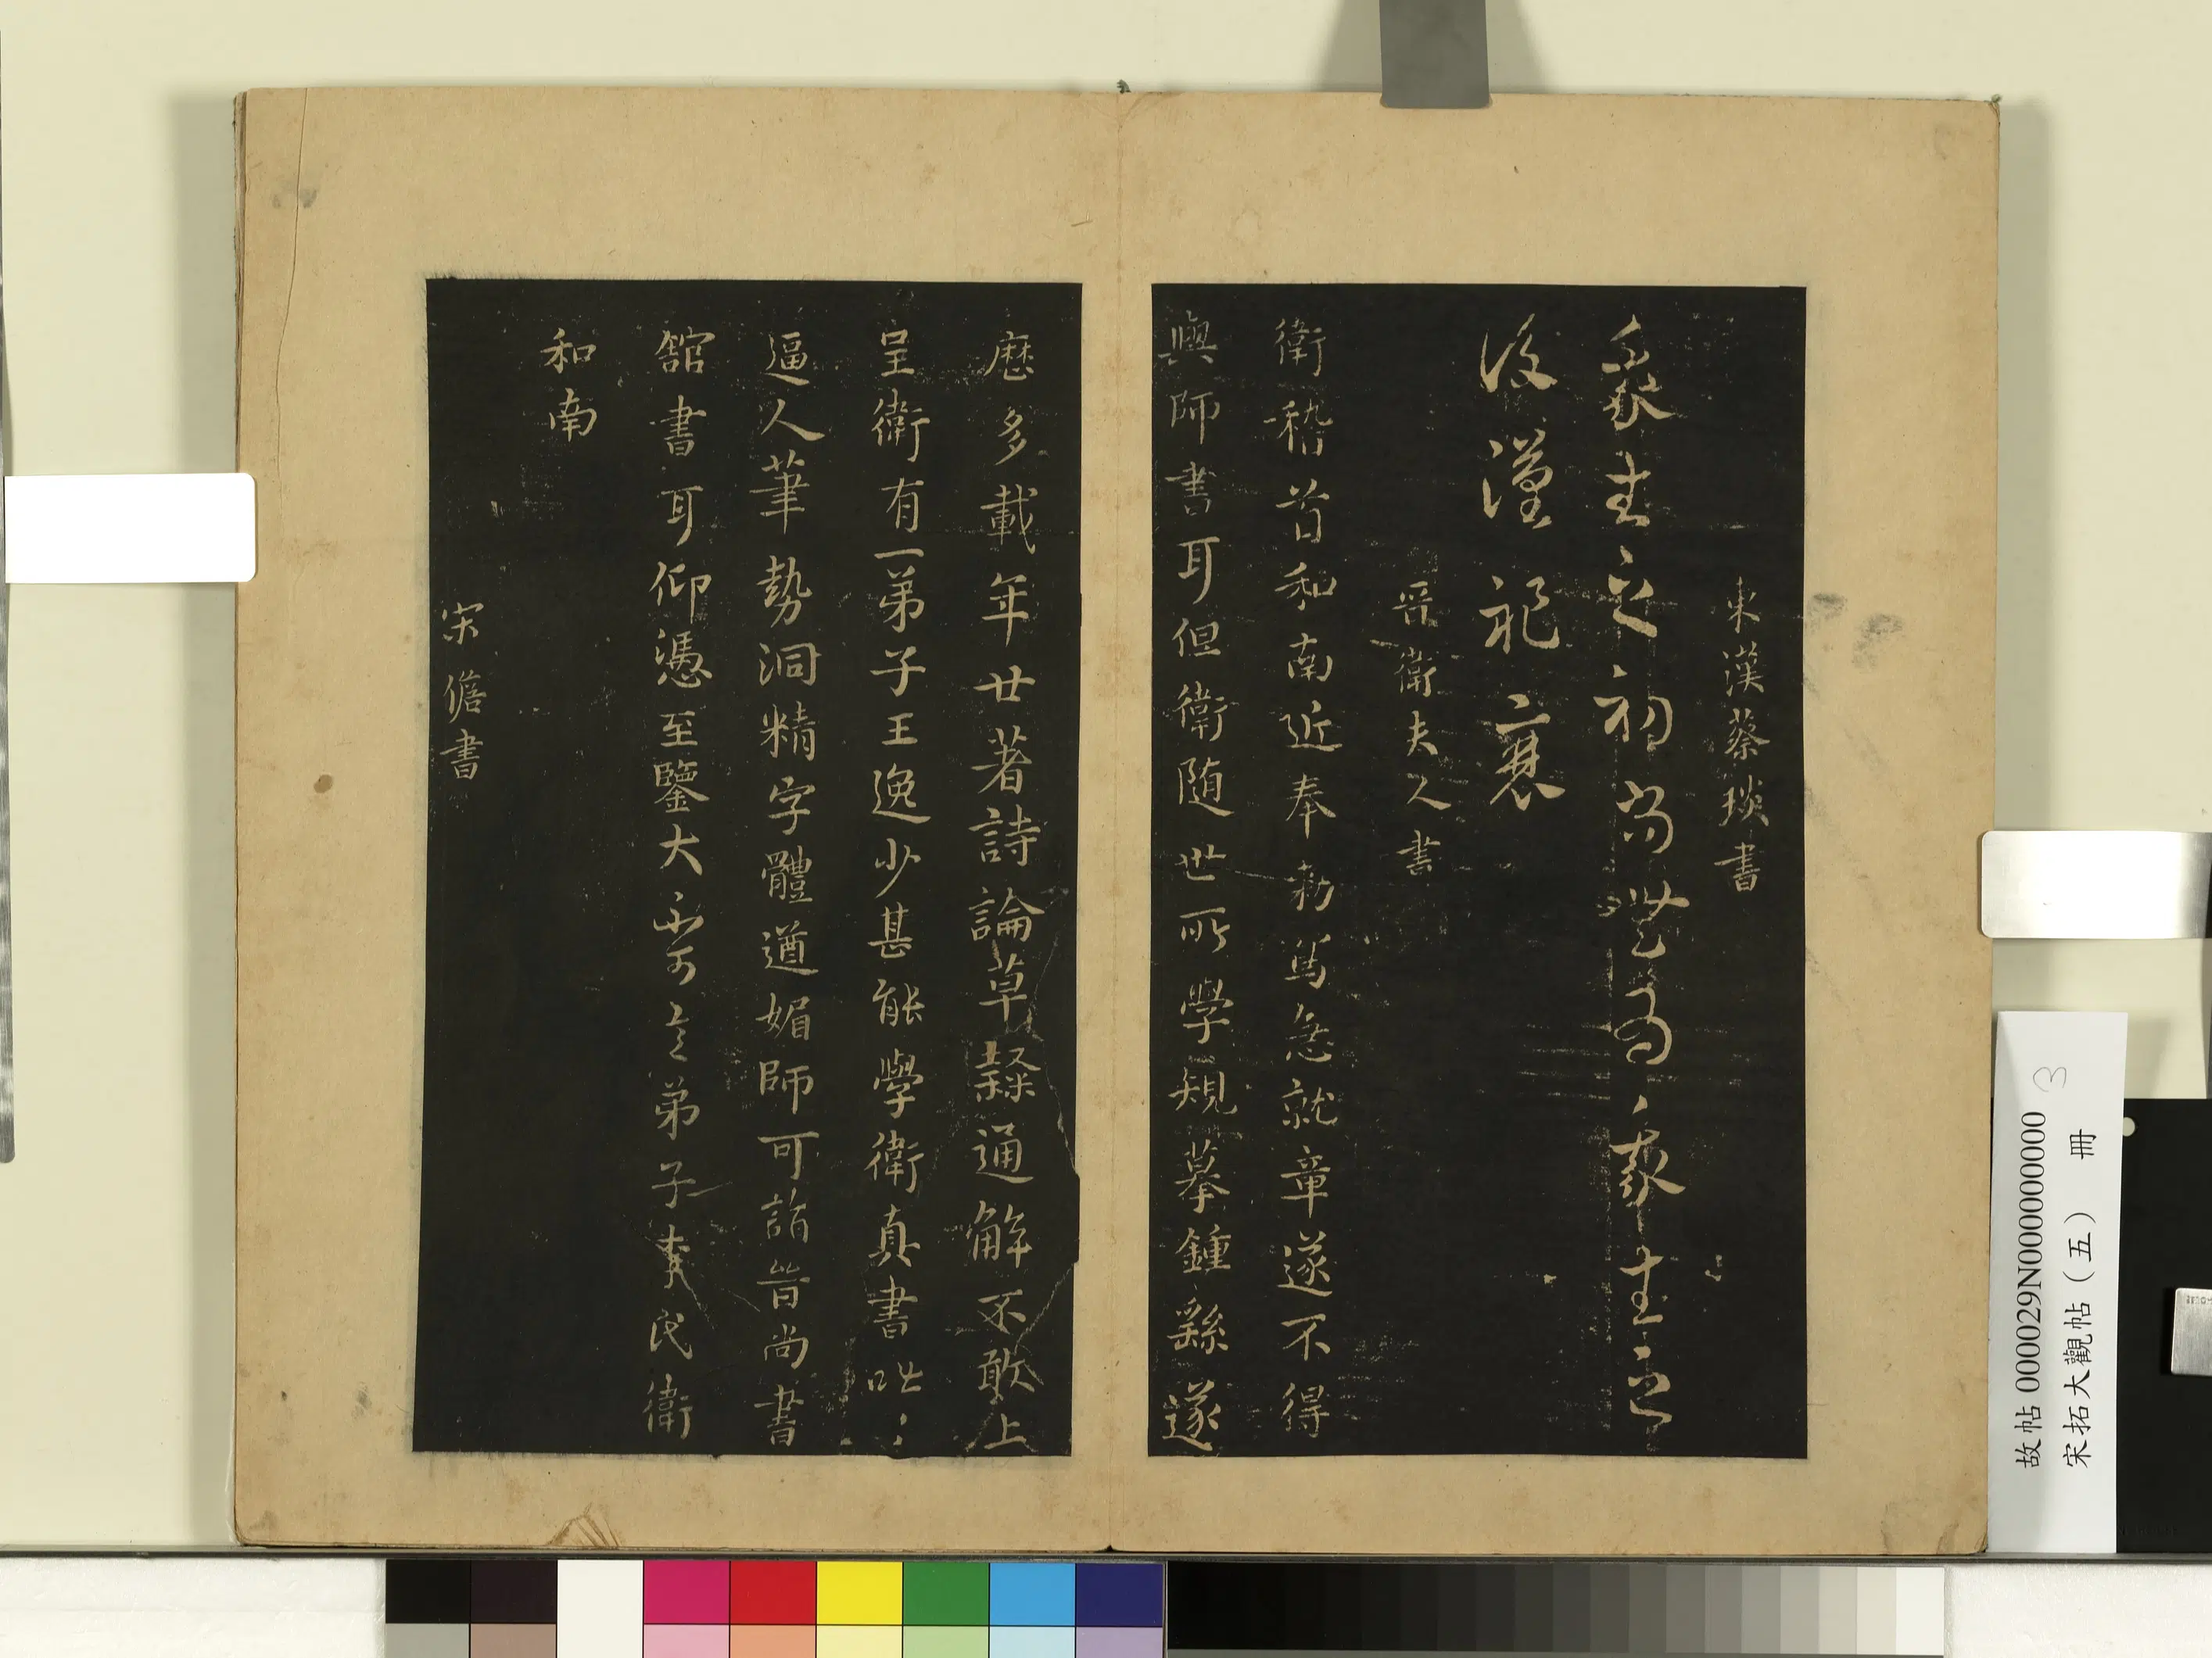 東漢蔡琰書
我生之初尚無為我生之
後漢祚衰
晉衛夫人書
衛稽首和南近奉勑寫急就章遂不得
與師書耳但衛随世所學規摹鍾繇遂
歷多載年廿著詩論草隸通解不敢上
呈衛有一弟子王逸少甚能學衛真書咄〻
逼人筆勢洞精字體遒媚師可詣晉尚書
館書耳仰憑至鑒大不可言弟子李氏衛
和南
宋儋書
故帖 000029N000000000 3
宋拓大觀帖（五） 冊